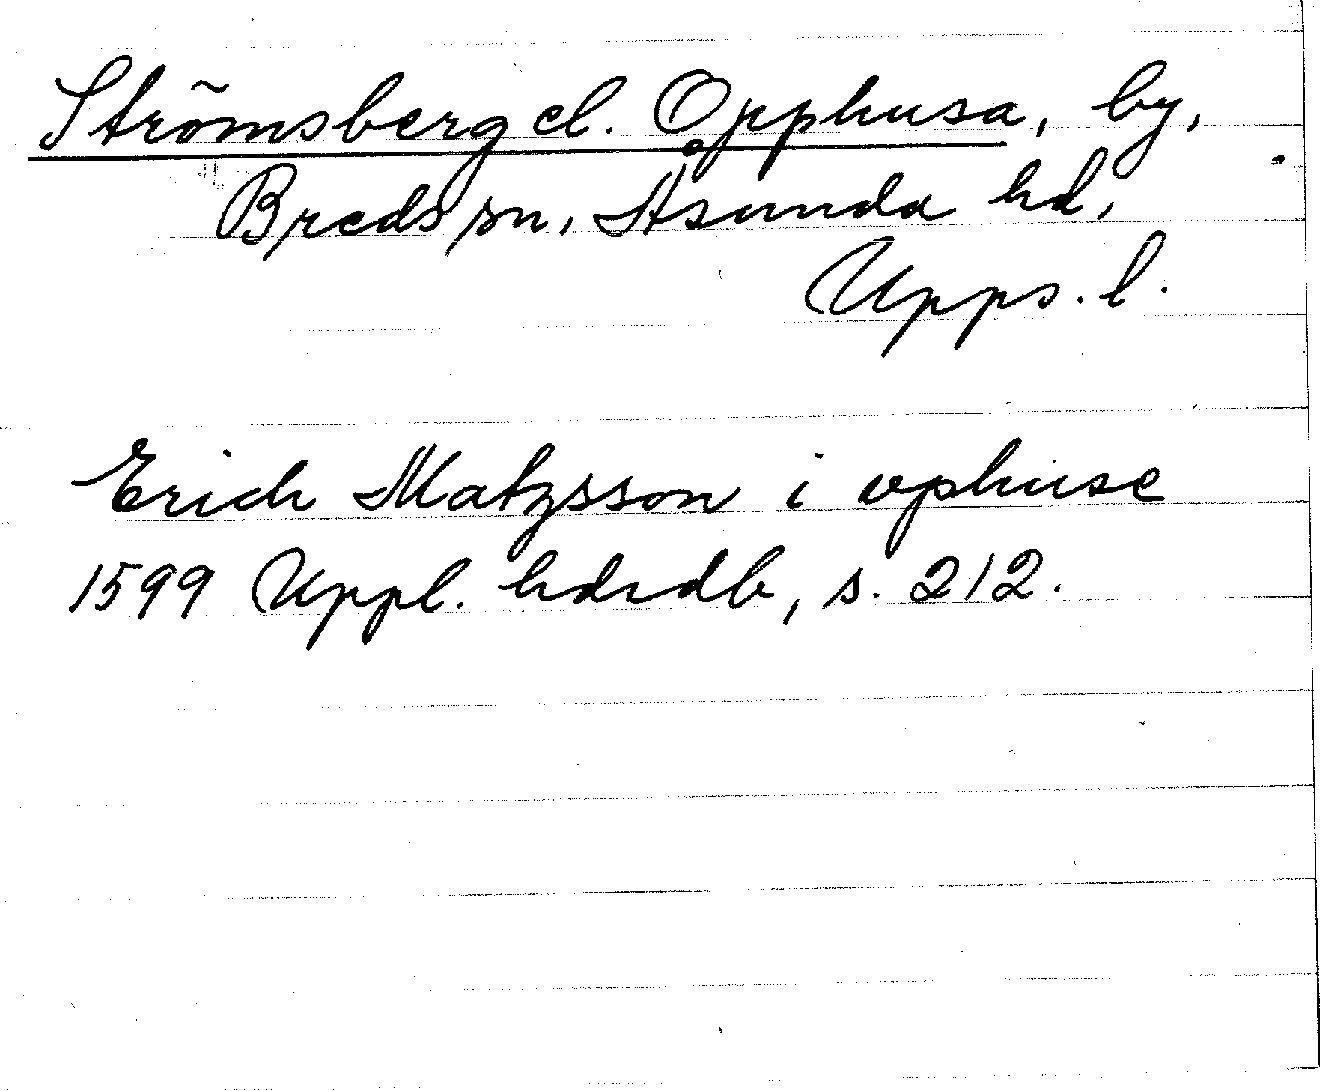 Strömsberg el. Opphusa, by,
Breds sn, Åsunda hd,
Upps. l.
Erich Matzsson i vphuse
1599 Uppl. hdrdb, s. 212.